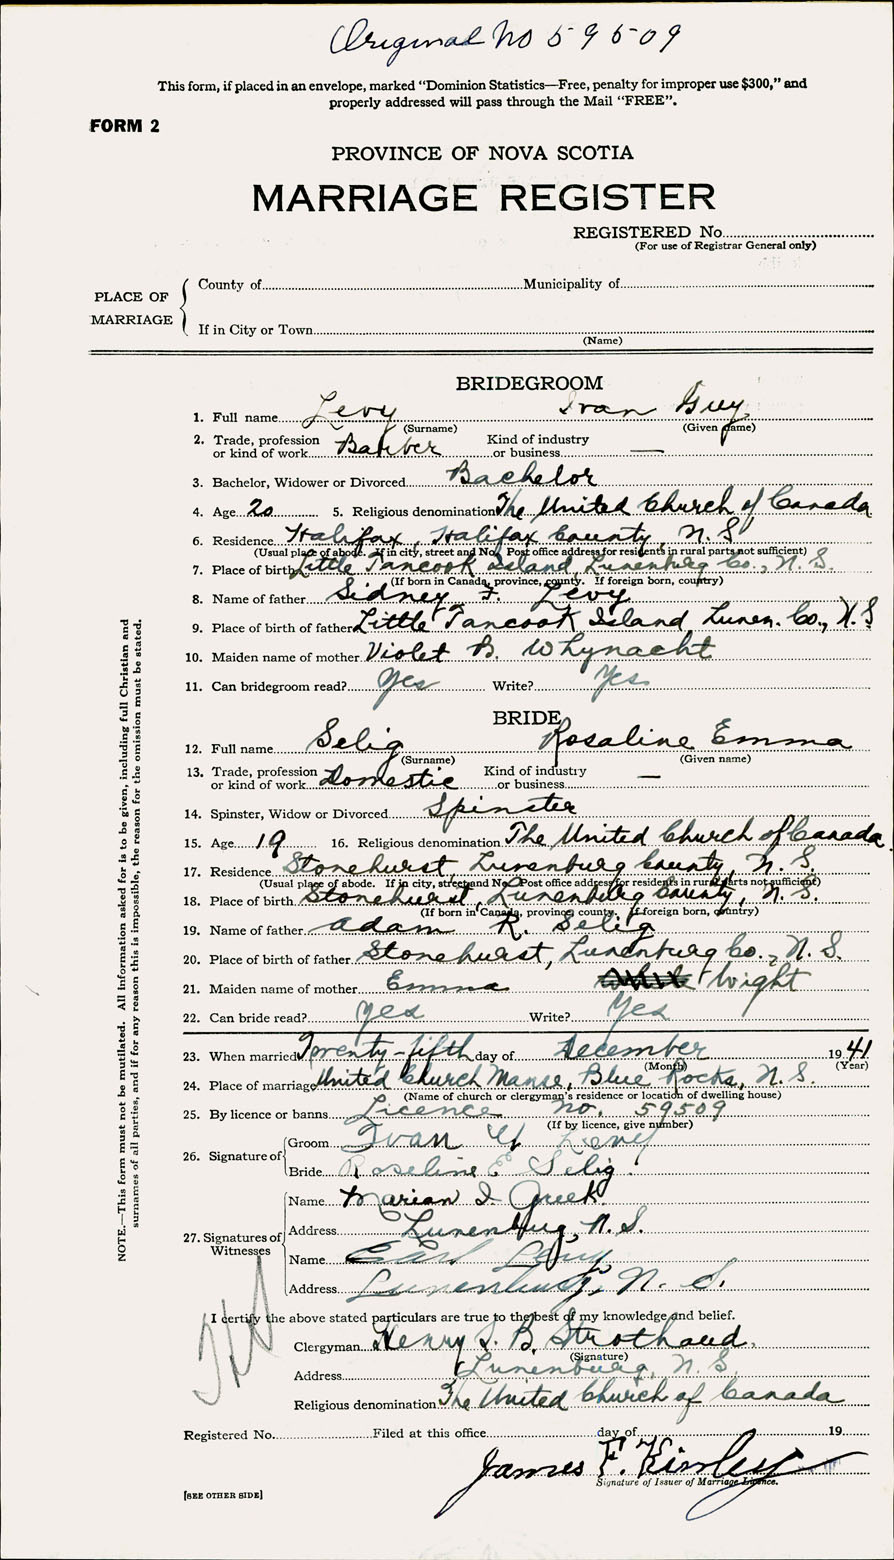 Original No 59509
This form, if placed in an envelope, marked "Dominion Statistics—Free, penalty for improper use $300," and
properly addressed will pass through the Mail "FREE".
FORM 2
PROVINCE OF NOVA SCOTIA
MARRIAGE REGISTER
REGISTERED No.
(For use of Registrar General only)
PLACE OF MARRIAGE
County of Municipality of
If in City or Town
(Name)
BRIDEGROOM
1. Full name Levy Ivan Guy
(Surname) (Given name)
2. Trade, profession or kind of work Barber Kind of industry or business —
3. Bachelor, Widower or Divorced Bachelor
4. Age 20 5. Religious denomination The United Church of Canada
6. Residence Halifax, Halifax County, N.S.
(Usual place of abode. If in city, street and No. Post office address for residents in rural parts not sufficient)
7. Place of birth Little Tancook Island Lunenburg Co., N.S.
(If born in Canada, province, county. If foreign born, country)
8. Name of father Sidney F. Levy
9. Place of birth of father Little Tancook Island Lunen. Co., N.S
10. Maiden name of mother Violet B. Whynacht
11. Can bridegroom read? Yes Write? Yes
BRIDE
12. Full name Selig Rosaline Emma
(Surname) (Given name)
13. Trade, profession or kind of work Domestic Kind of industry or business —
14. Spinster, Widow or Divorced Spinster
15. Age 19 16. Religious denomination The United Church of Canada.
17. Residence Stonehurst, Lunenburg County, N.S.
(Usual place of abode. If in city, street and No. Post office address for residents in rural parts not sufficient)
18. Place of birth Stonehurst, Lunenburg County, N.S.
(If born in Canada, province county. If foreign born, country)
19. Name of father Adam R. Selig
20. Place of birth of father Stonehurst, Lunenburg Co., N.S.
21. Maiden name of mother Emma Wight
22. Can bride read? Yes Write? Yes
23. When married Twenty-fifth day of December 1941
(Month) (Year)
24. Place of marriage United Church Manse, Blue Rocks, N.S.
(Name of church or clergyman's residence or location of dwelling house)
25. By licence or banns Licence no. 59509
(If by licence, give number)
26. Signature of Groom Ivan G Levy
Bride Roseline E Selig
27. Signatures of Witnesses
Name Marian I. Greek
Address Lunenburg, N.S.
Name Earl Levy
Address Lunenburg, N. S.
I certify the above stated particulars are true to the best of my knowledge and belief.
Clergyman Henry S. B. Strothard,
(Signature)
Address Lunenburg, N.S.
Religious denomination The United Church of Canada
Registered No. Filed at this office day of 19
James F. Kinley
Signature of Issuer of Marriage Licence.
[SEE OTHER SIDE]
NOTE.—This form must not be mutilated. All information asked for is to be given, including full Christian and
surnames of all parties, and if for any reason this is impossible, the reason for the omission must be stated.